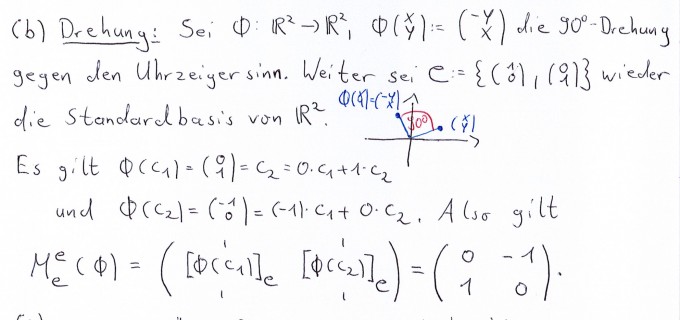 (b) Drehung: Sei Φ: ℝ² → ℝ², Φ(x y) := (-y x) die 90°-Drehung
gegen den Uhrzeigersinn. Weiter sei e := {(1 0), (0 1)} wieder
die Standardbasis von ℝ².
Φ(x y) = (-y x)
90°
(x y)
Es gilt Φ(c₁) = (0 1) = c₂ = 0·c₁ + 1·c₂
und Φ(c₂) = (-1 0) = (-1)·c₁ + 0·c₂. Also gilt
Mₑᵉ(Φ) = ([Φ(c₁)]ₑ [Φ(c₂)]ₑ) = (0 -1
1 0).